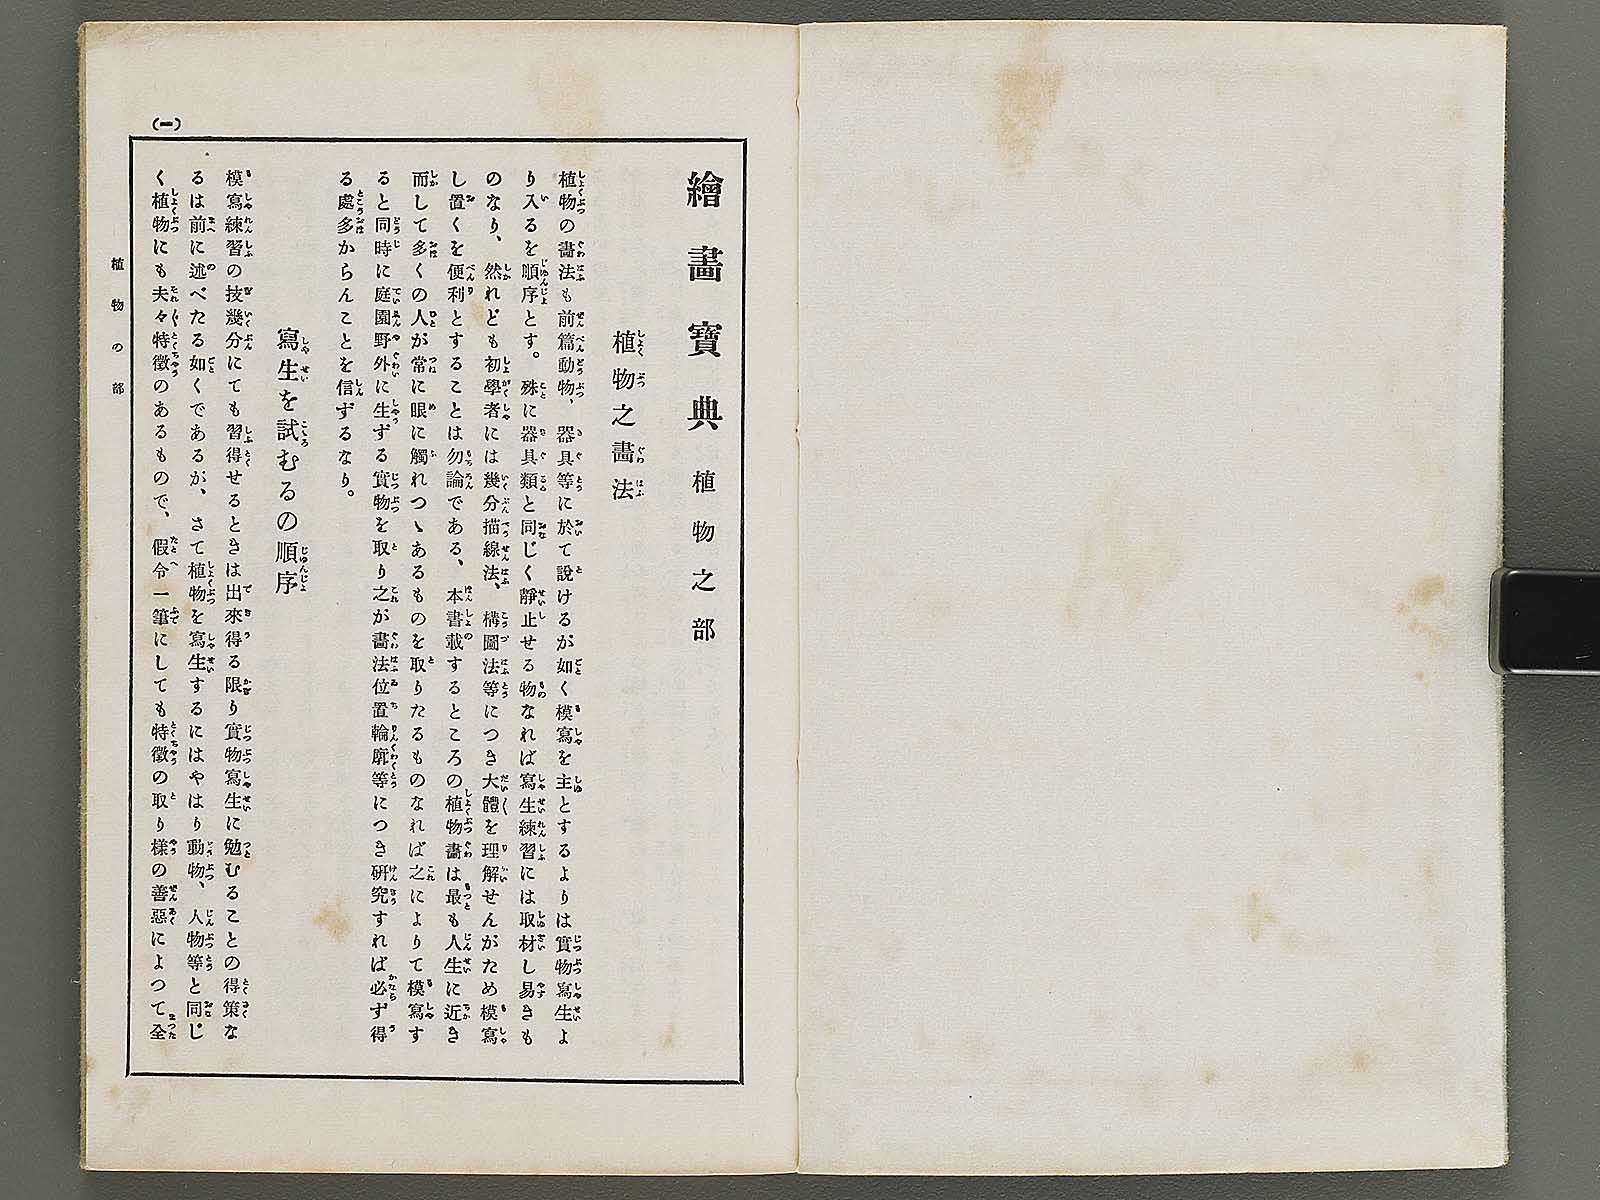 繪畫寶典 植物之部
植物之畫法
植物の畫法も前篇動物、器具等に於て說けるが如く模寫を主とするよりは實物寫生よ
り入るを順序とす。殊に器具類と同じく靜止せる物なれば寫生練習には取材し易きも
のなり、然れども初學者には幾分描線法、構圖法等につき大體を理解せんがため模寫
し置くを便利とすることは勿論である、本書載するところの植物畫は最も人生に近き
而して多くの人が常に眼に觸れつゝあるものを取りたるものなれば之によりて模寫す
ると同時に庭園野外に生ずる實物を取り之が畫法位置輪廓等につき硏究すれば必ず得
る處多からんことを信ずるなり。
寫生を試むるの順序
模寫練習の技幾分にても習得せるときは出來得る限り實物寫生に勉むることの得策な
るは前に述べたる如くであるが、さて植物を寫生するにはやはり動物、人物等と同じ
く植物にも夫々特徵のあるもので、假令一筆にしても特徵の取り樣の善惡によつて全
植物の部
(一)